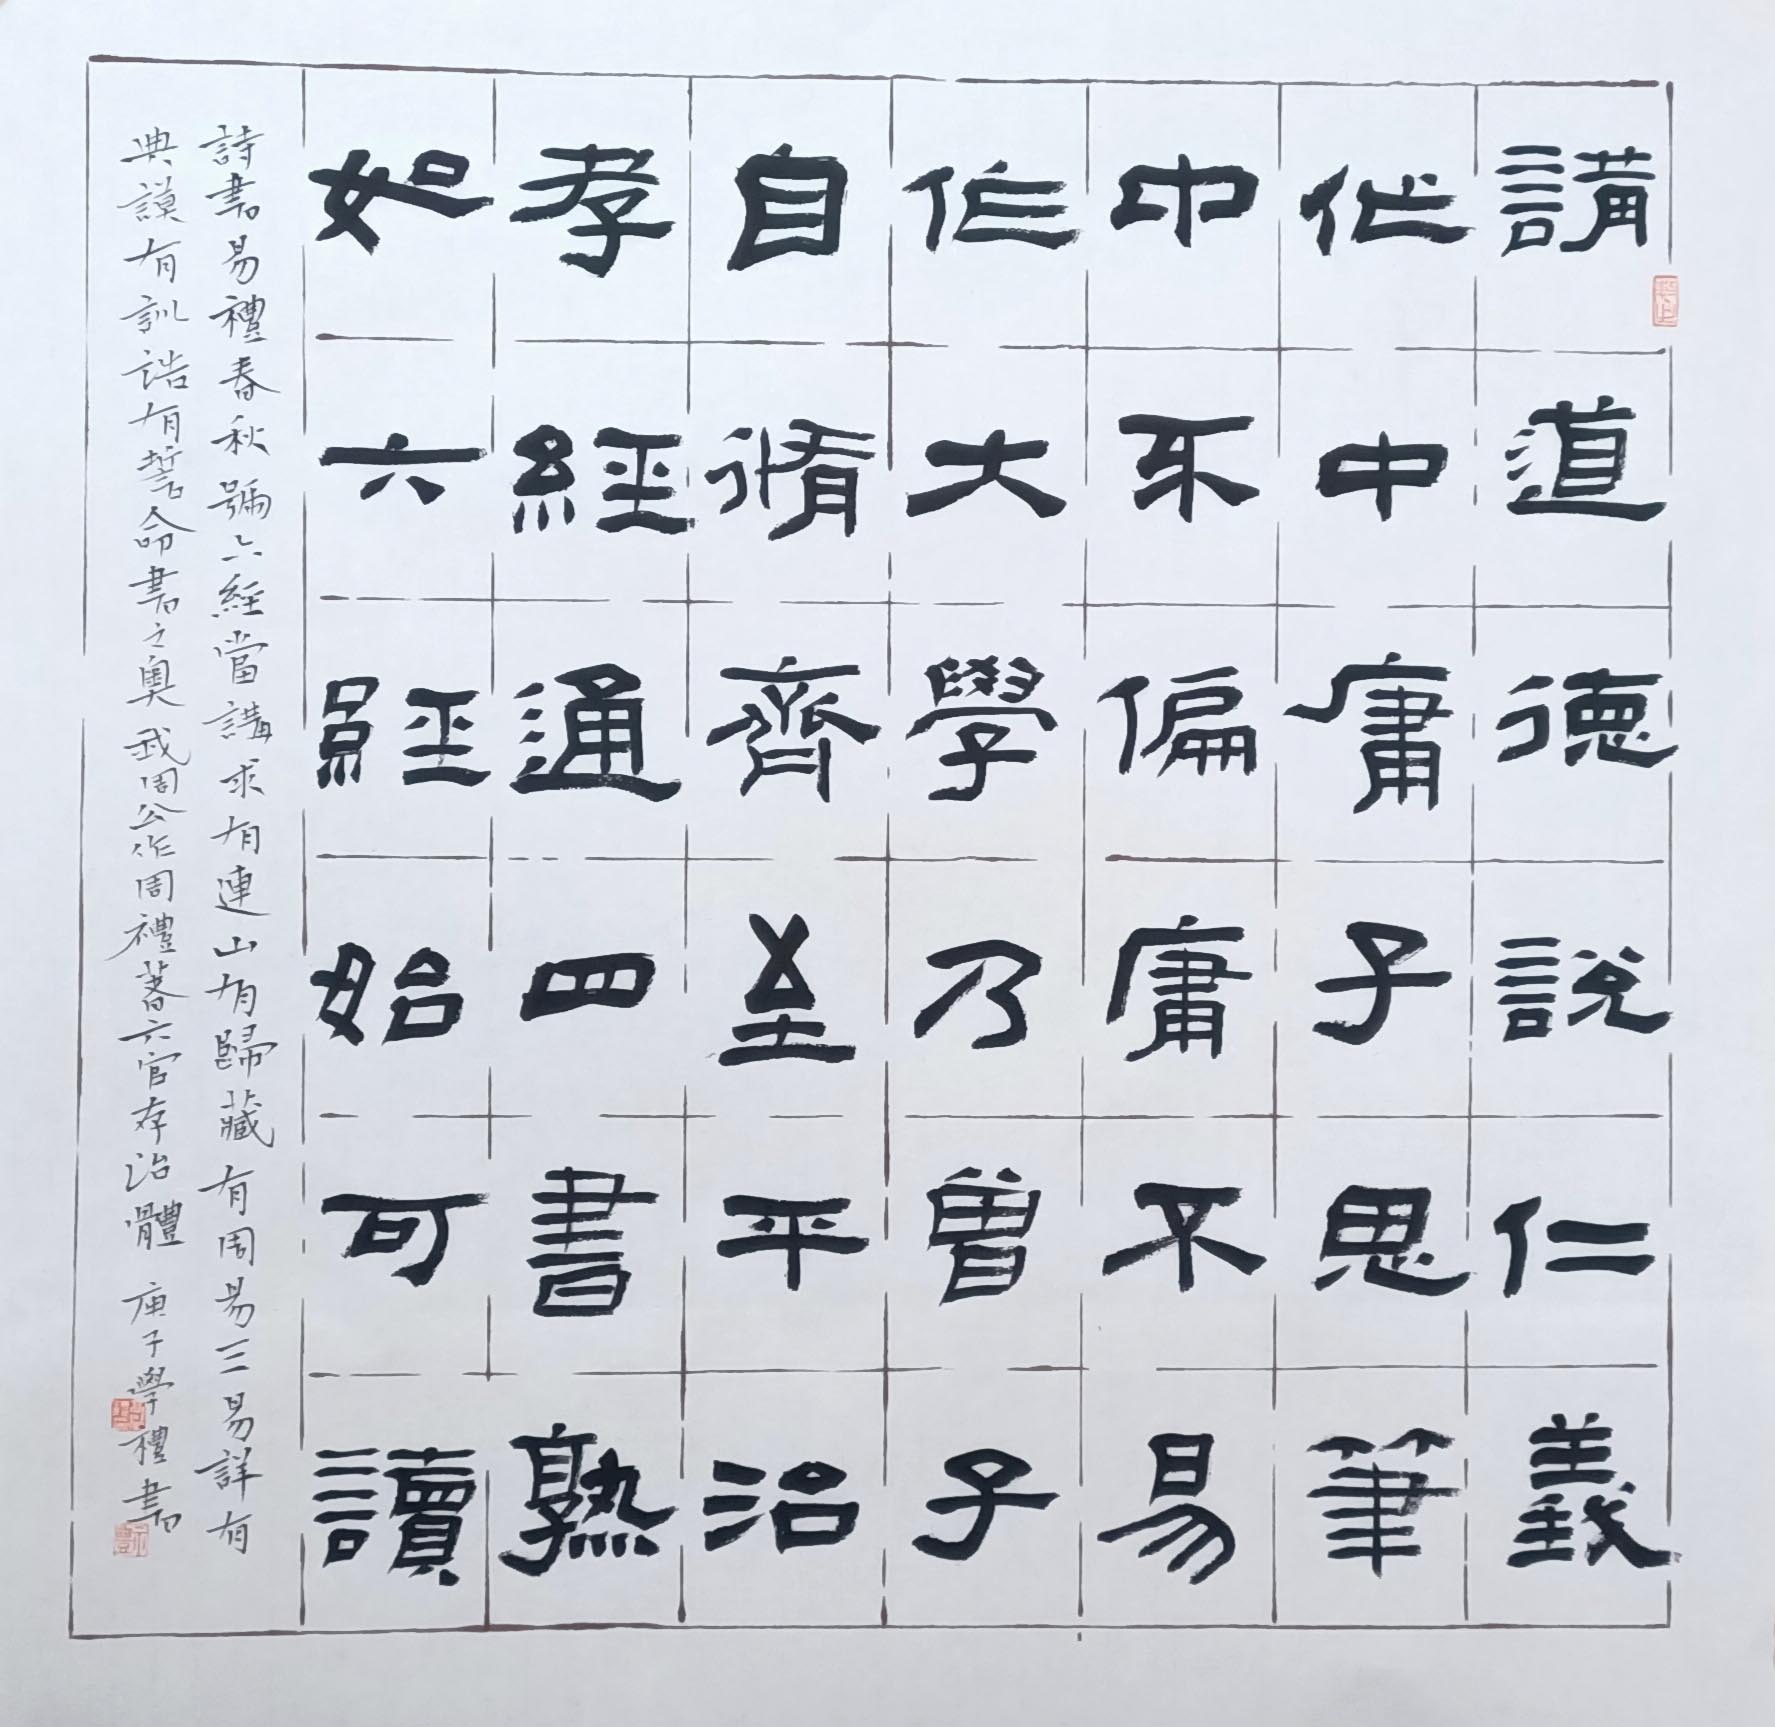 講道德說仁義
作中庸子思筆
中不偏庸不易
作大學乃曾子
自脩齊至平治
孝經通四書熟
如六經始可讀
詩書易禮春秋號六經當講求有連山有歸藏有周易三易詳有
典謨有訓誥有誓命書之奧我周公作周禮著六官存治體 庚子學禮書